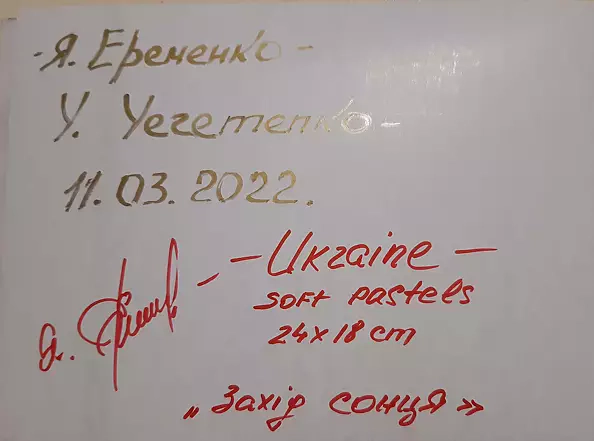 - Я. Еременко -
Y. Yeremenko -
11.03.2022.
- Ukraine -
soft pastels
24x18 cm
„Захід сонця»